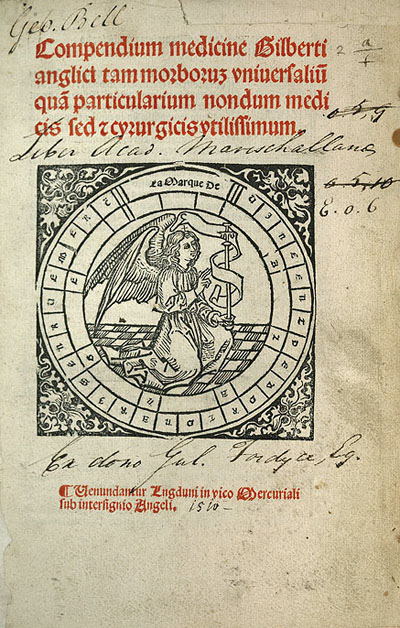 Geo. Bell
Compendium medicine Gilberti
anglici tam morboruz vniuersaliū
quā particularium nondum medi
cis sed ⁊ cyrurgicis vtilissimum.
2 a
f
o. 5. 9
Liber Acad. Marischallanae
o. 5. 10
E. o. 6
La Marque De
Ex dono Gul. Fordyce, Eq.
¶ Uenundantur Lugduni in vico Mercuriali
sub intersignio Angeli. 1510